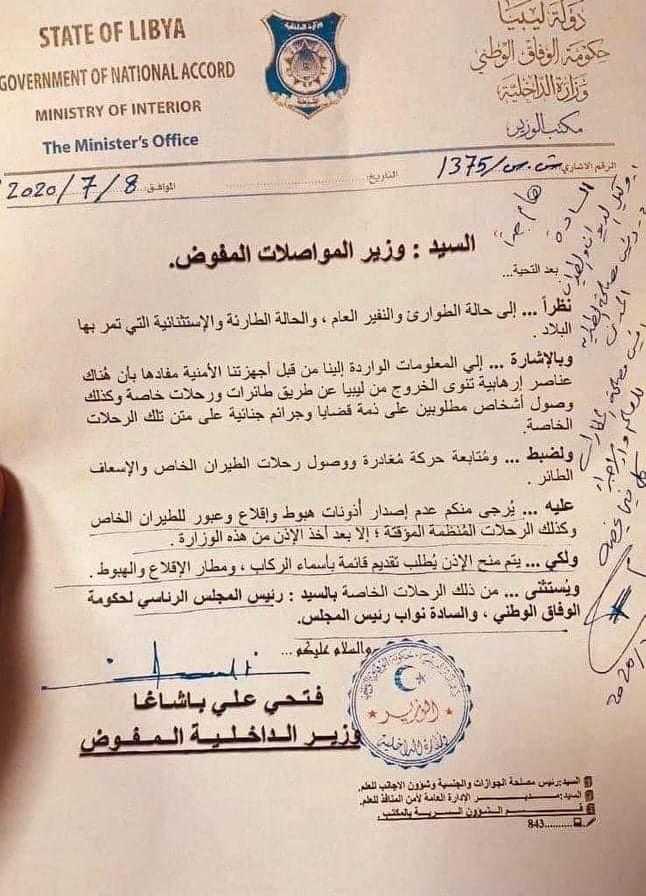 STATE OF LIBYA
GOVERNMENT OF NATIONAL ACCORD
MINISTRY OF INTERIOR
The Minister's Office
دولة ليبيا
حكومة الوفاق الوطني
وزارة الداخلية
مكتب الوزير
الرقم الاشاري: 1375
التاريخ: الموافق: 2020/7/8
هام جدا
السيد : وزير المواصلات المفوض.
بعد التحية...
نظراً ... إلى حالة الطوارئ والنفير العام ، والحالة الطارئة والإستثنائية التي تمر بها
البلاد .
وبالإشارة ... إلي المعلومات الواردة إلينا من قبل أجهزتنا الأمنية مفادها بأن هُناك
عناصر إرهابية تنوى الخروج من ليبيا عن طريق طائرات ورحلات خاصة وكذلك
وصول أشخاص مطلوبين على ذمة قضايا وجرائم جنائية على متن تلك الرحلات
الخاصة.
ولضبط ... ومُتابعة حركة مُغادرة ووصول رحلات الطيران الخاص والإسعاف
الطائر .
عليه ... يُرجى منكم عدم إصدار أذونات هبوط وإقلاع وعبور للطيران الخاص
وكذلك الرحلات المُنظمة المؤقتة ؛ إلا بعد أخذ الإذن من هذه الوزارة .
ولكي ... يتم منح الإذن يُطلب تقديم قائمة بأسماء الركاب ، ومطار الإقلاع والهبوط .
ويُستثنى ... من ذلك الرحلات الخاصة بالسيد : رئيس المجلس الرئاسي لحكومة
الوفاق الوطني ، والسادة نواب رئيس المجلس.
والسلام عليكم ...
فتحي علي باشاغا
وزير الداخلية المفوض
الوزير
وزارة الداخلية
السيد:رئيس مصلحة الجوازات والجنسية وشؤون الاجانب للعلم.
السيد:مدير الإدارة العامة لأمن المنافذ للعلم.
قسم الشؤون السرية بالمكتب.
843..........